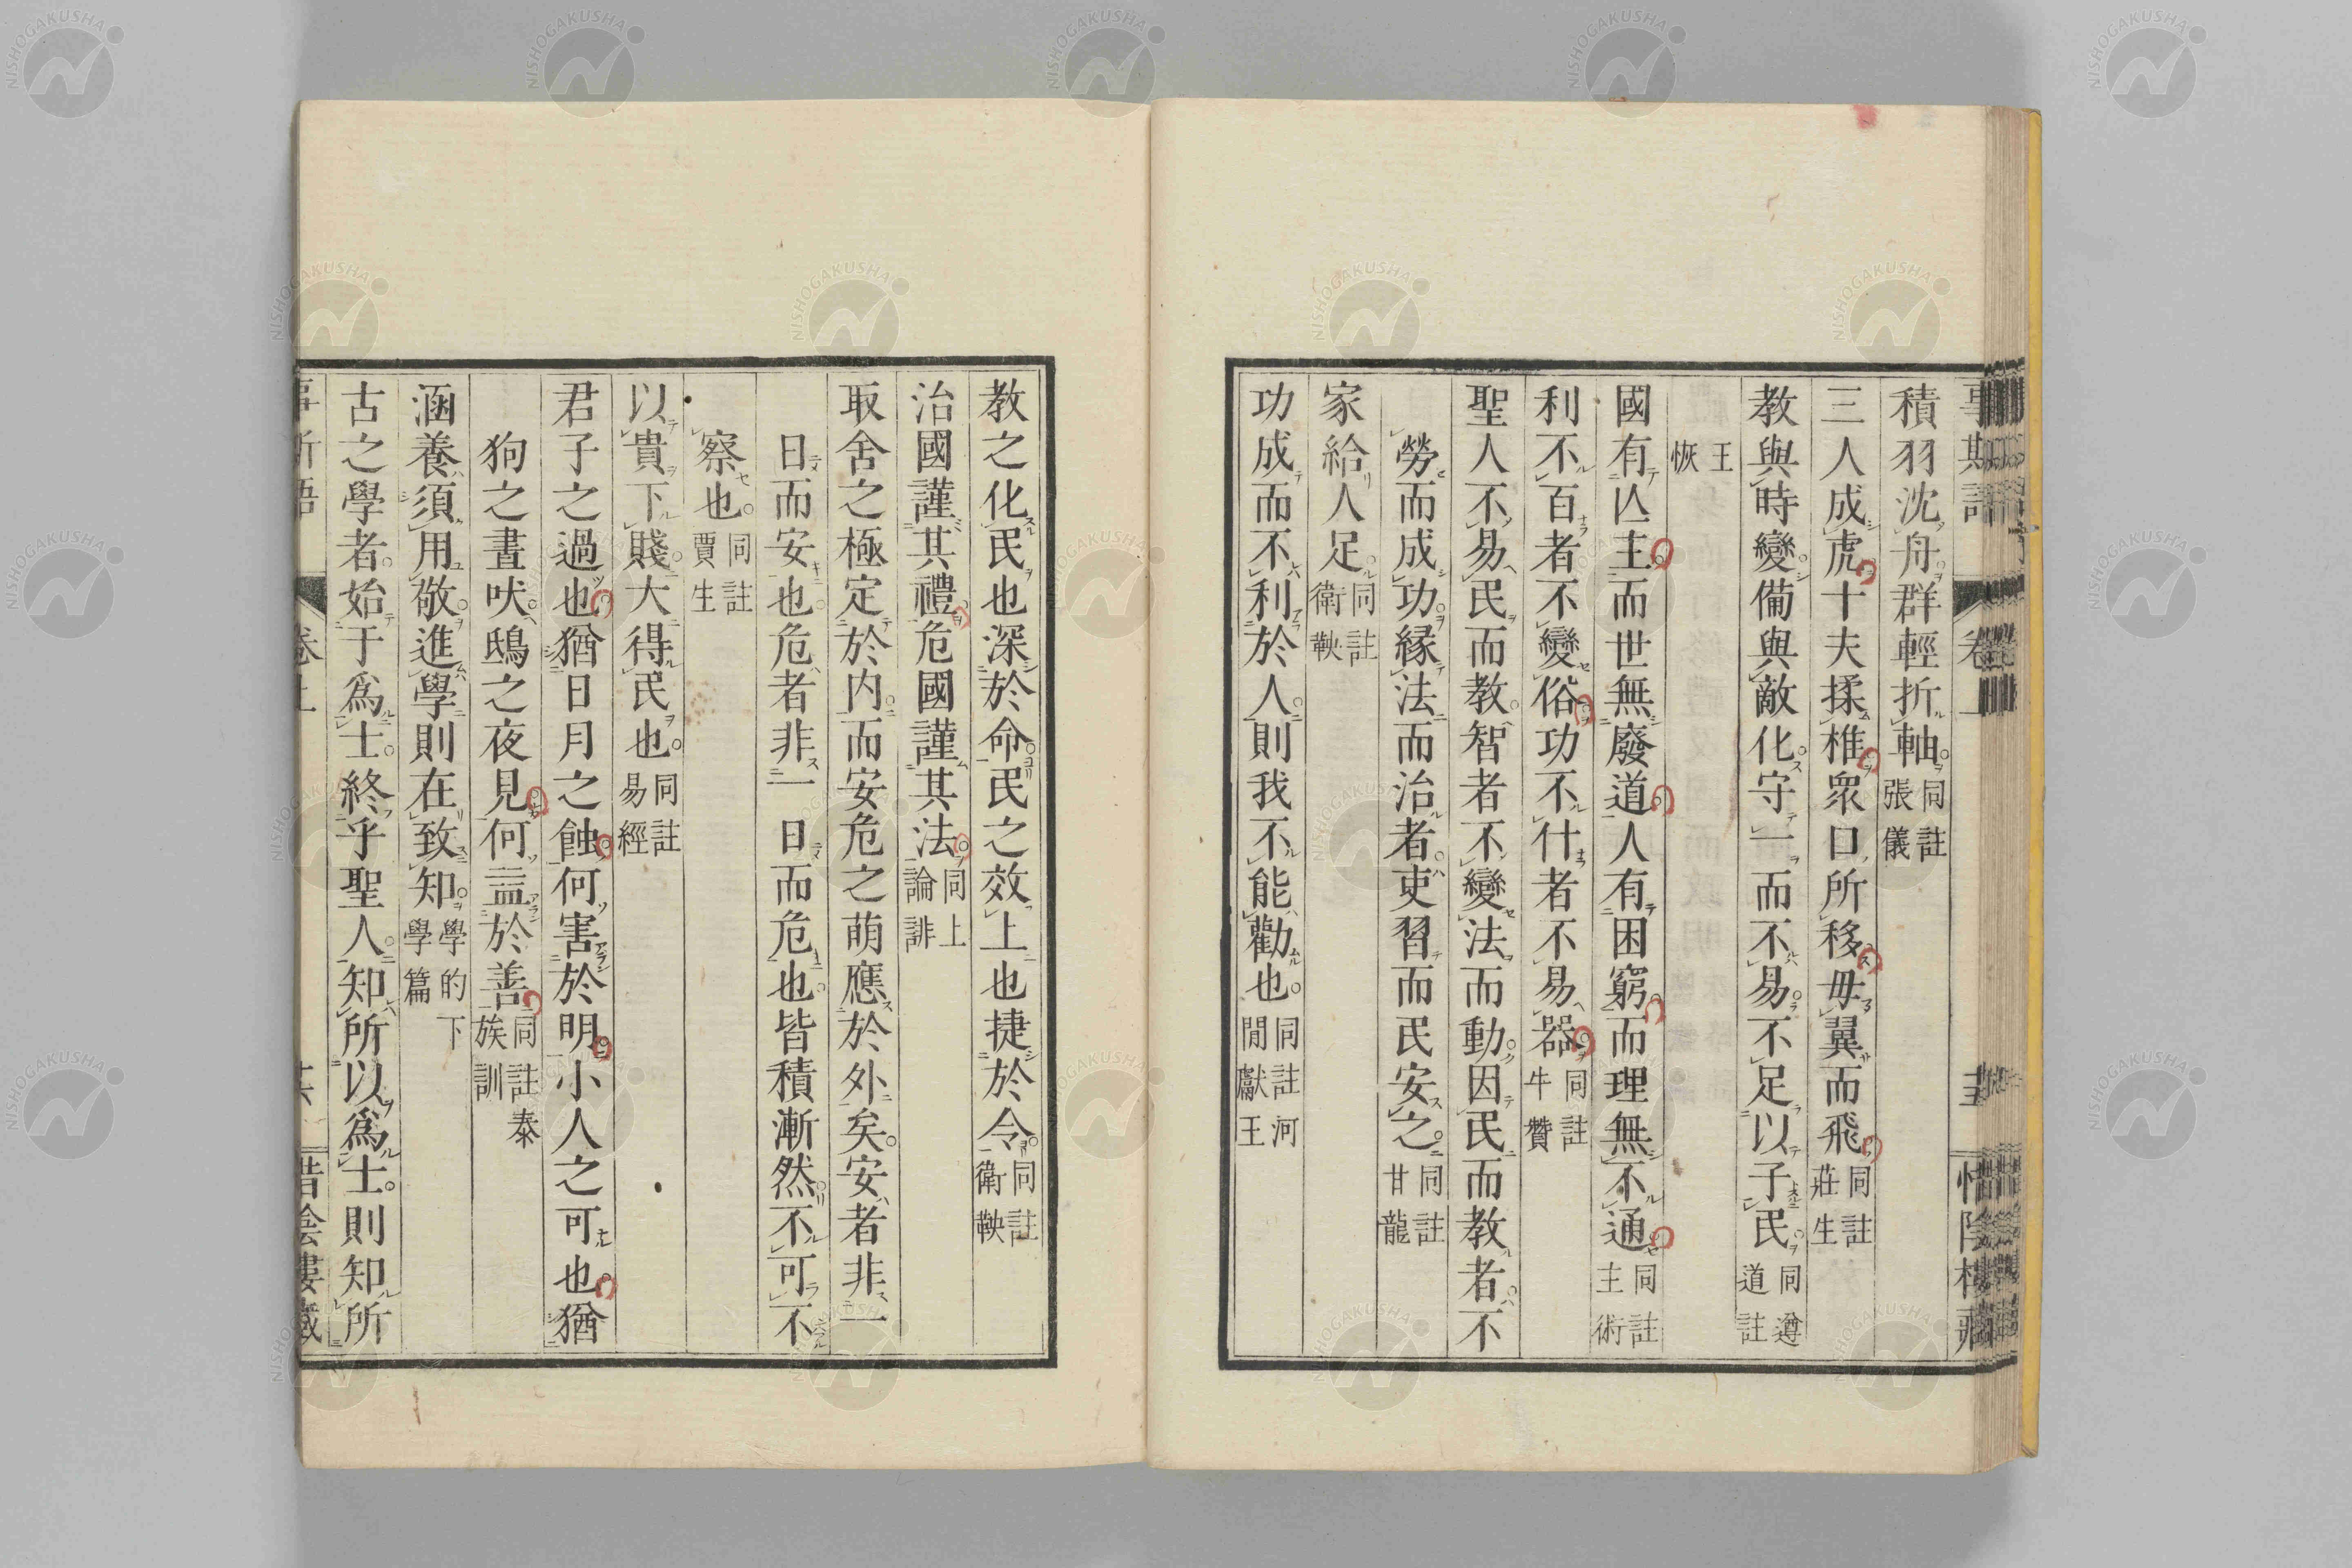 積羽沈舟群輕折軸同註張儀
三人成虎十夫揉椎衆口所移毋翼而飛同註莊生
教與時變備與敵化守一而不易不足以子民同遵道註
王恢
國有亾主而世無廢道人有困窮而理無不通同註主術
利不百者不變俗功不什者不易器同註牛贊
聖人不易民而教智者不變法而動因民而教者不
勞而成功緣法而治者吏習而民安之同註甘龍
家給人足同註衛鞅
功成而不利於人則我不能勸也同註河間獻王
教之化民也深於命民之效上也捷於令同註衛鞅
治國謹其禮危國謹其法同上論誹
取舍之極定於内而安危之萌應於外矣安者非一
日而安也危者非一日而危也皆積漸然不可不
察也同註賈生
以貴下賤大得民也同註易經
君子之過也猶日月之蝕何害於明小人之可也猶
狗之晝吠鴟之夜見何益於善同註泰族訓
涵養須用敬進學則在致知學的下學篇
古之學者始于爲士終乎聖人知所以爲士則知所
卷上
惜陰樓藏
NISHOGAKUSHA